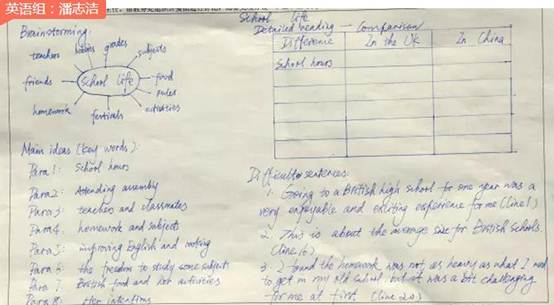 英语组：潘志洁
School life
Brainstorming:
grades
teachers
subjects
friends
School life
food
rules
homework
festivals
activities
Main ideas (key words):
Para 1: School hours
Para 2: Attending assembly
Para 3: teachers and classmates
Para 4: homework and subjects
Para 5: improving English and cooking
Para 6: the freedom to study some subjects
Para 7: British food and her activities
Para 8: Her intentions
Detailed reading — Comparison
Difference In the UK In China
School hours
Difficult sentences
1. Going to a British high school for one year was a
very enjoyable and exciting experience for me (line 1)
2. This is about the average size for British schools.
(line 16)
3. I found the homework was not as heavy as what I used
to get in my old school, but it was a bit challenging
for me at first. (line 20)